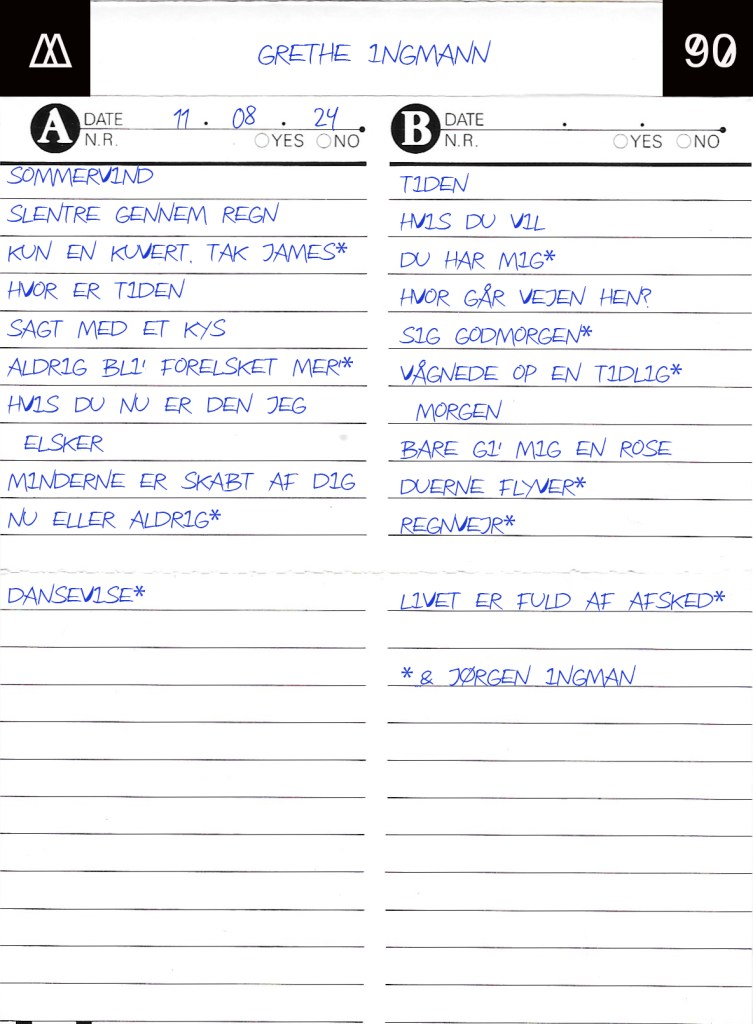 GRETHE INGMANN
90
A DATE 11 . 08 . 24
N.R. YES NO
SOMMERVIND
SLENTRE GENNEM REGN
KUN EN KUVERT. TAK JAMES*
HVOR ER TIDEN
SAGT MED ET KYS
ALDRIG BLI' FORELSKET MER'*
HVIS DU NU ER DEN JEG
ELSKER
MINDERNE ER SKABT AF DIG
NU ELLER ALDRIG*
DANSEVISE*
B DATE . .
N.R. YES NO
TIDEN
HVIS DU VIL
DU HAR MIG*
HVOR GÅR VEJEN HEN?
SIG GODMORGEN*
VÅGNEDE OP EN TIDLIG*
MORGEN
BARE GI' MIG EN ROSE
DUERNE FLYVER*
REGNVEJR*
LIVET ER FULD AF AFSKED*
* & JØRGEN INGMAN